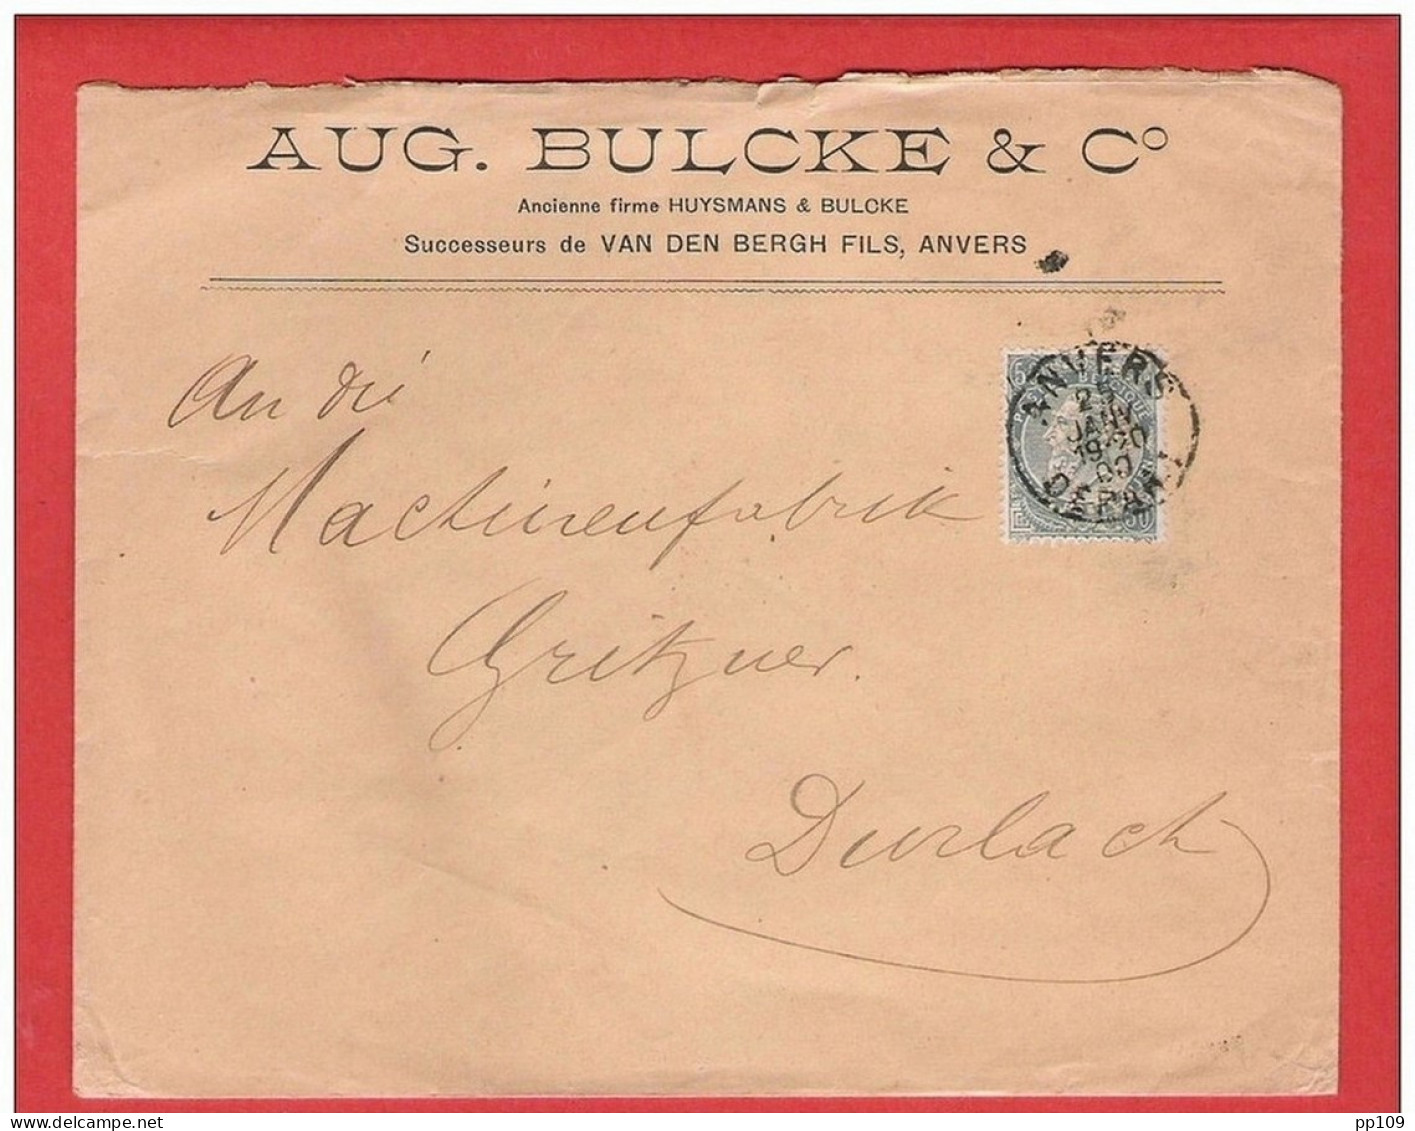 AUG. BULCKE & Cº
Ancienne firme HUYSMANS & BULCKE
Successeurs de VAN DEN BERGH FILS, ANVERS
An die
Machinenfabrik
Gritzner.
Durlach
ANVERS
JANV
DEPART
50
delcampe.net
pp109